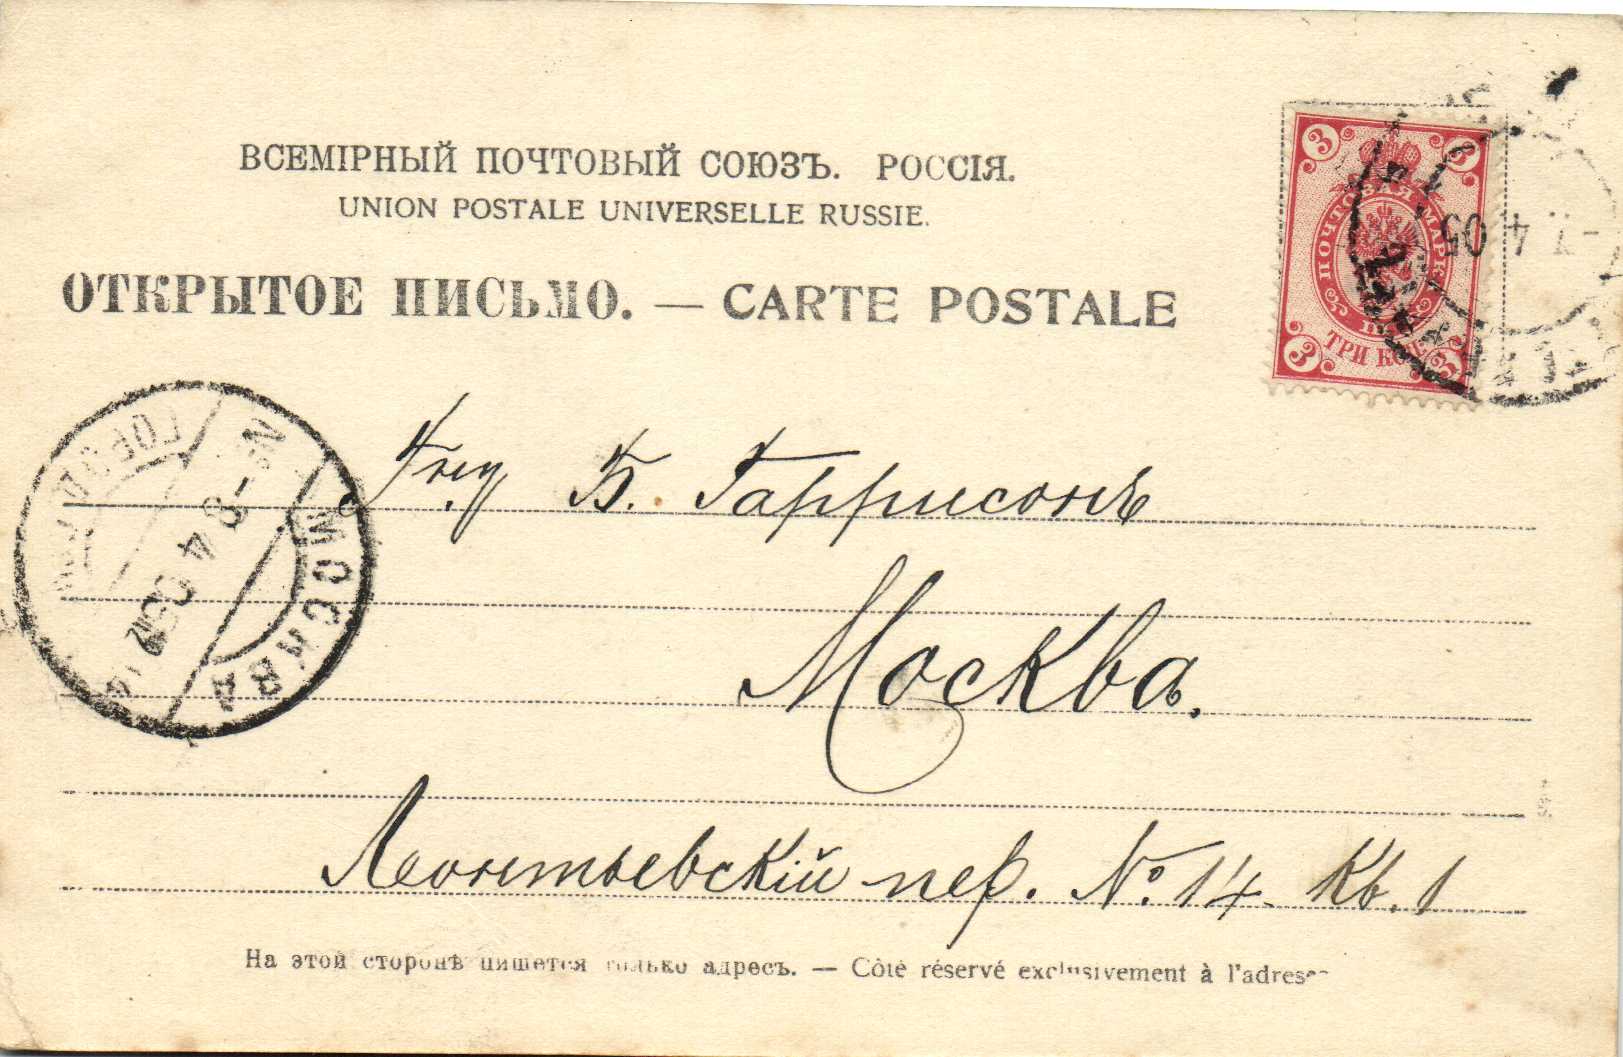 ВСЕМІРНЫЙ ПОЧТОВЫЙ СОЮЗЪ. РОССІЯ.
UNION POSTALE UNIVERSELLE RUSSIE.
ОТКРЫТОЕ ПИСЬМО. — CARTE POSTALE
3 3
ПОЧТОВАЯ МАРКА
ТРИ КОП.
3 3
4 05
МОСКВА
8 4 05
Б. Гаррисонъ
Москва.
Леонтьевскій пер. № 14. Кв. 1
На этой сторонѣ пишется только адресъ. — Côté réservé exclusivement à l'adresse